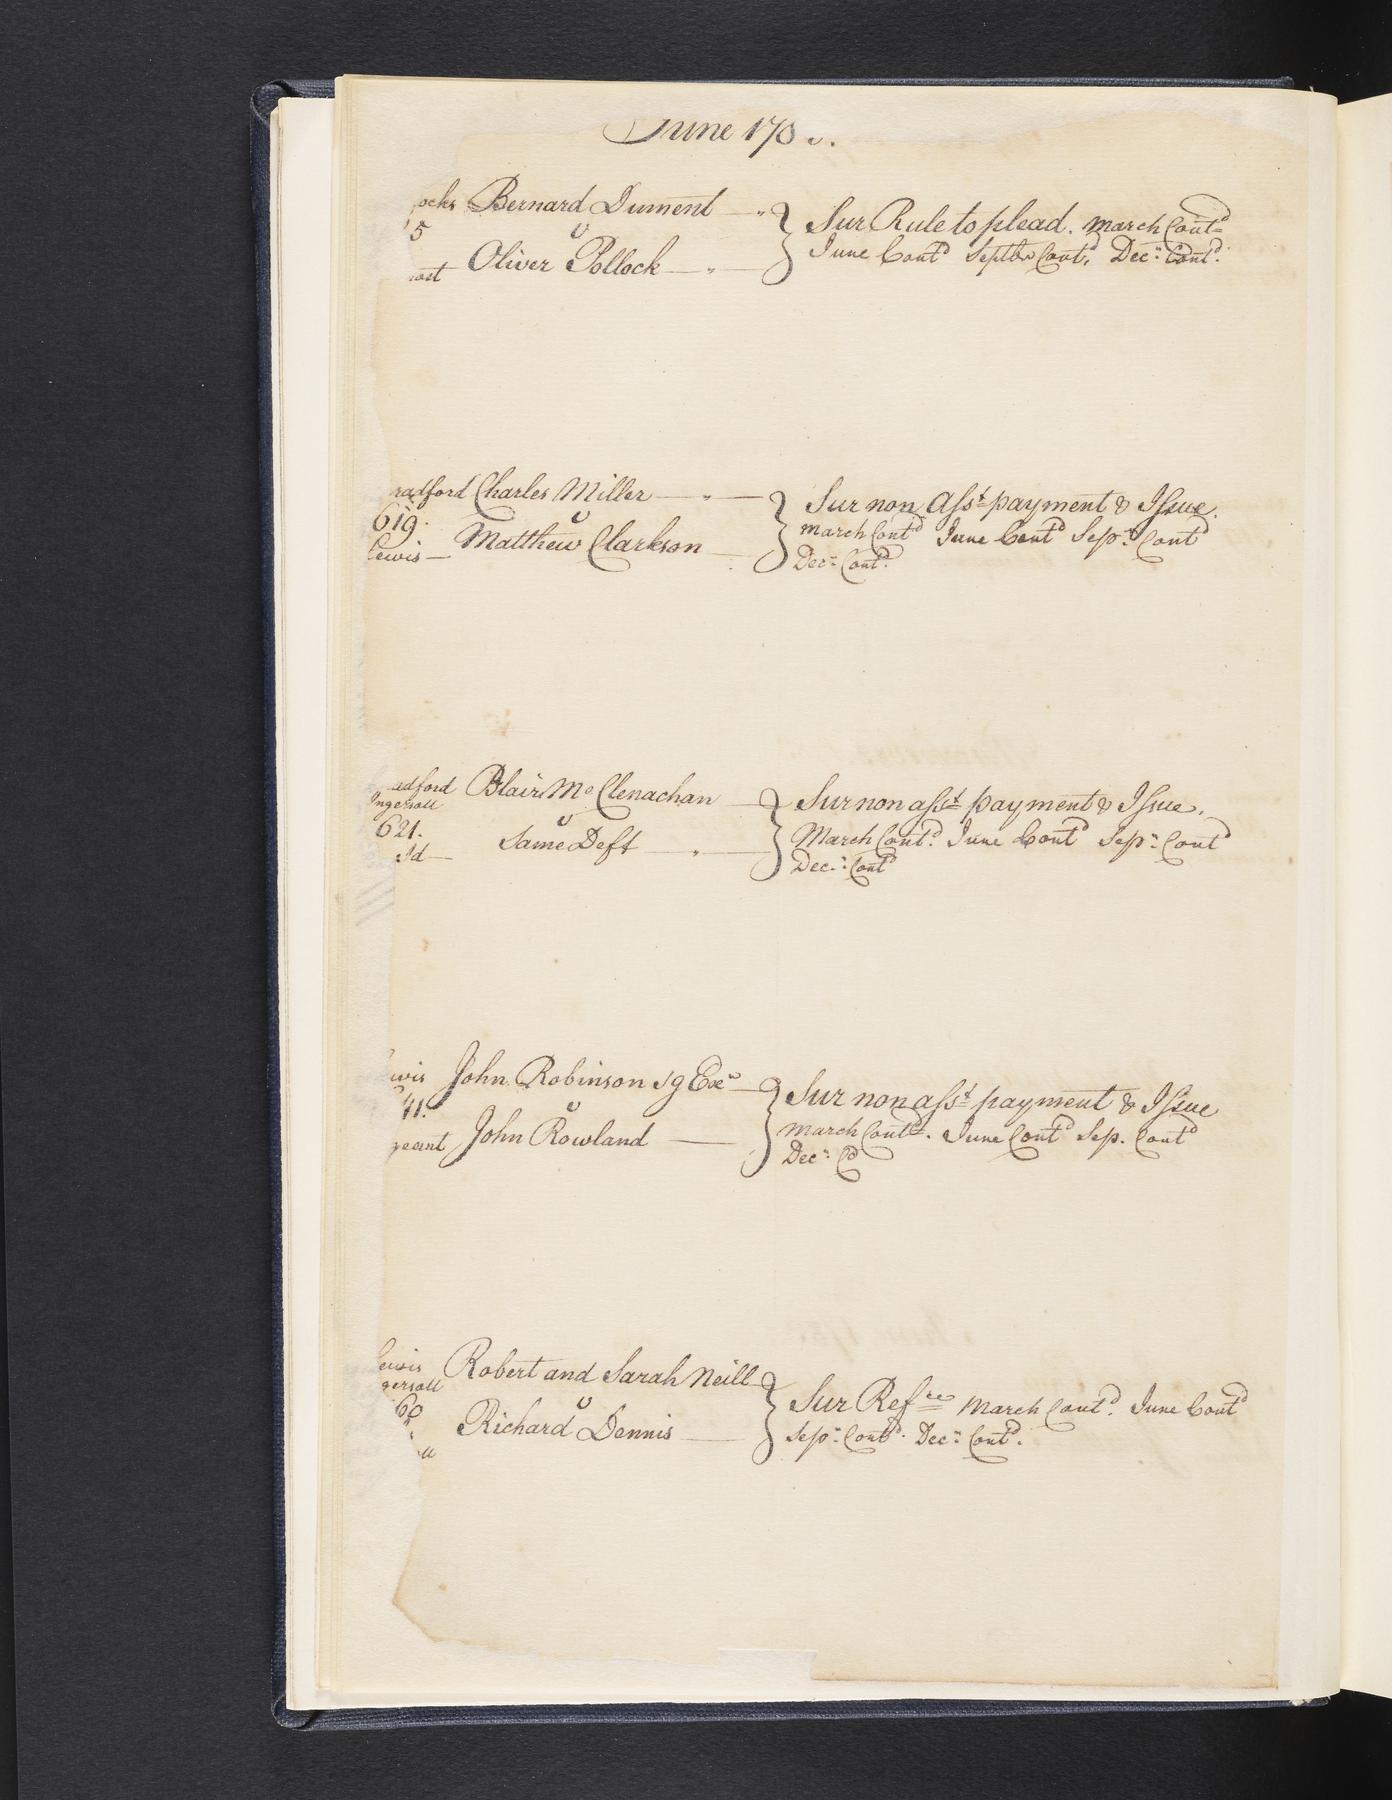 June 178
Bernard Dument
5 v
Oliver Pollock
Sur Rule to plead. March Contd
June Contd Septbr Contd. Decr Contd.
radford Charles Miller
619. v
Lewis Matthew Clarkson
Sur non Asst payment & Issue.
March Contd June Contd Sepr Contd
Decr Contd.
adford Blair Mc Clenachan
Ingersoll
621. v
Id Same Deft
Sur non asst payment & Issue.
March Contd. June Contd Sepr Contd
Decr Contd
wis John Robinson Exr
41. v
geant John Rowland
Sur non asst payment & Issue
March Contd. June Contd Sep. Contd
Decr Cd
Lewis Robert and Sarah Neill
gersoll
60 v
ll Richard Dennis
Sur Refce March Contd. June Contd
Sepr Contd. Decr Contd.